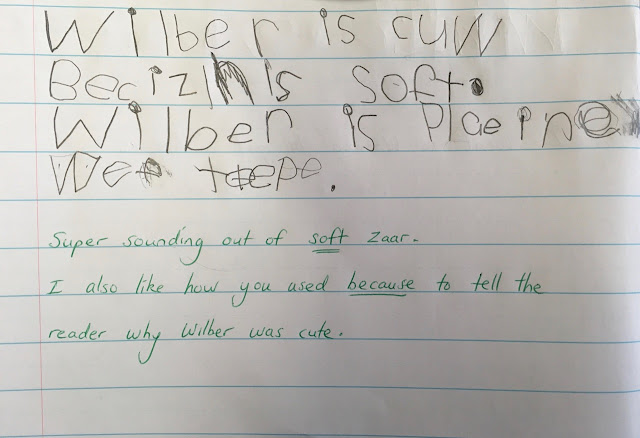 Wilber is cuw
Becizm is soft.
Wilber is Plaeine
We toepe.
Super sounding out of soft Zaar.
I also like how you used because to tell the
reader why Wilber was cute.